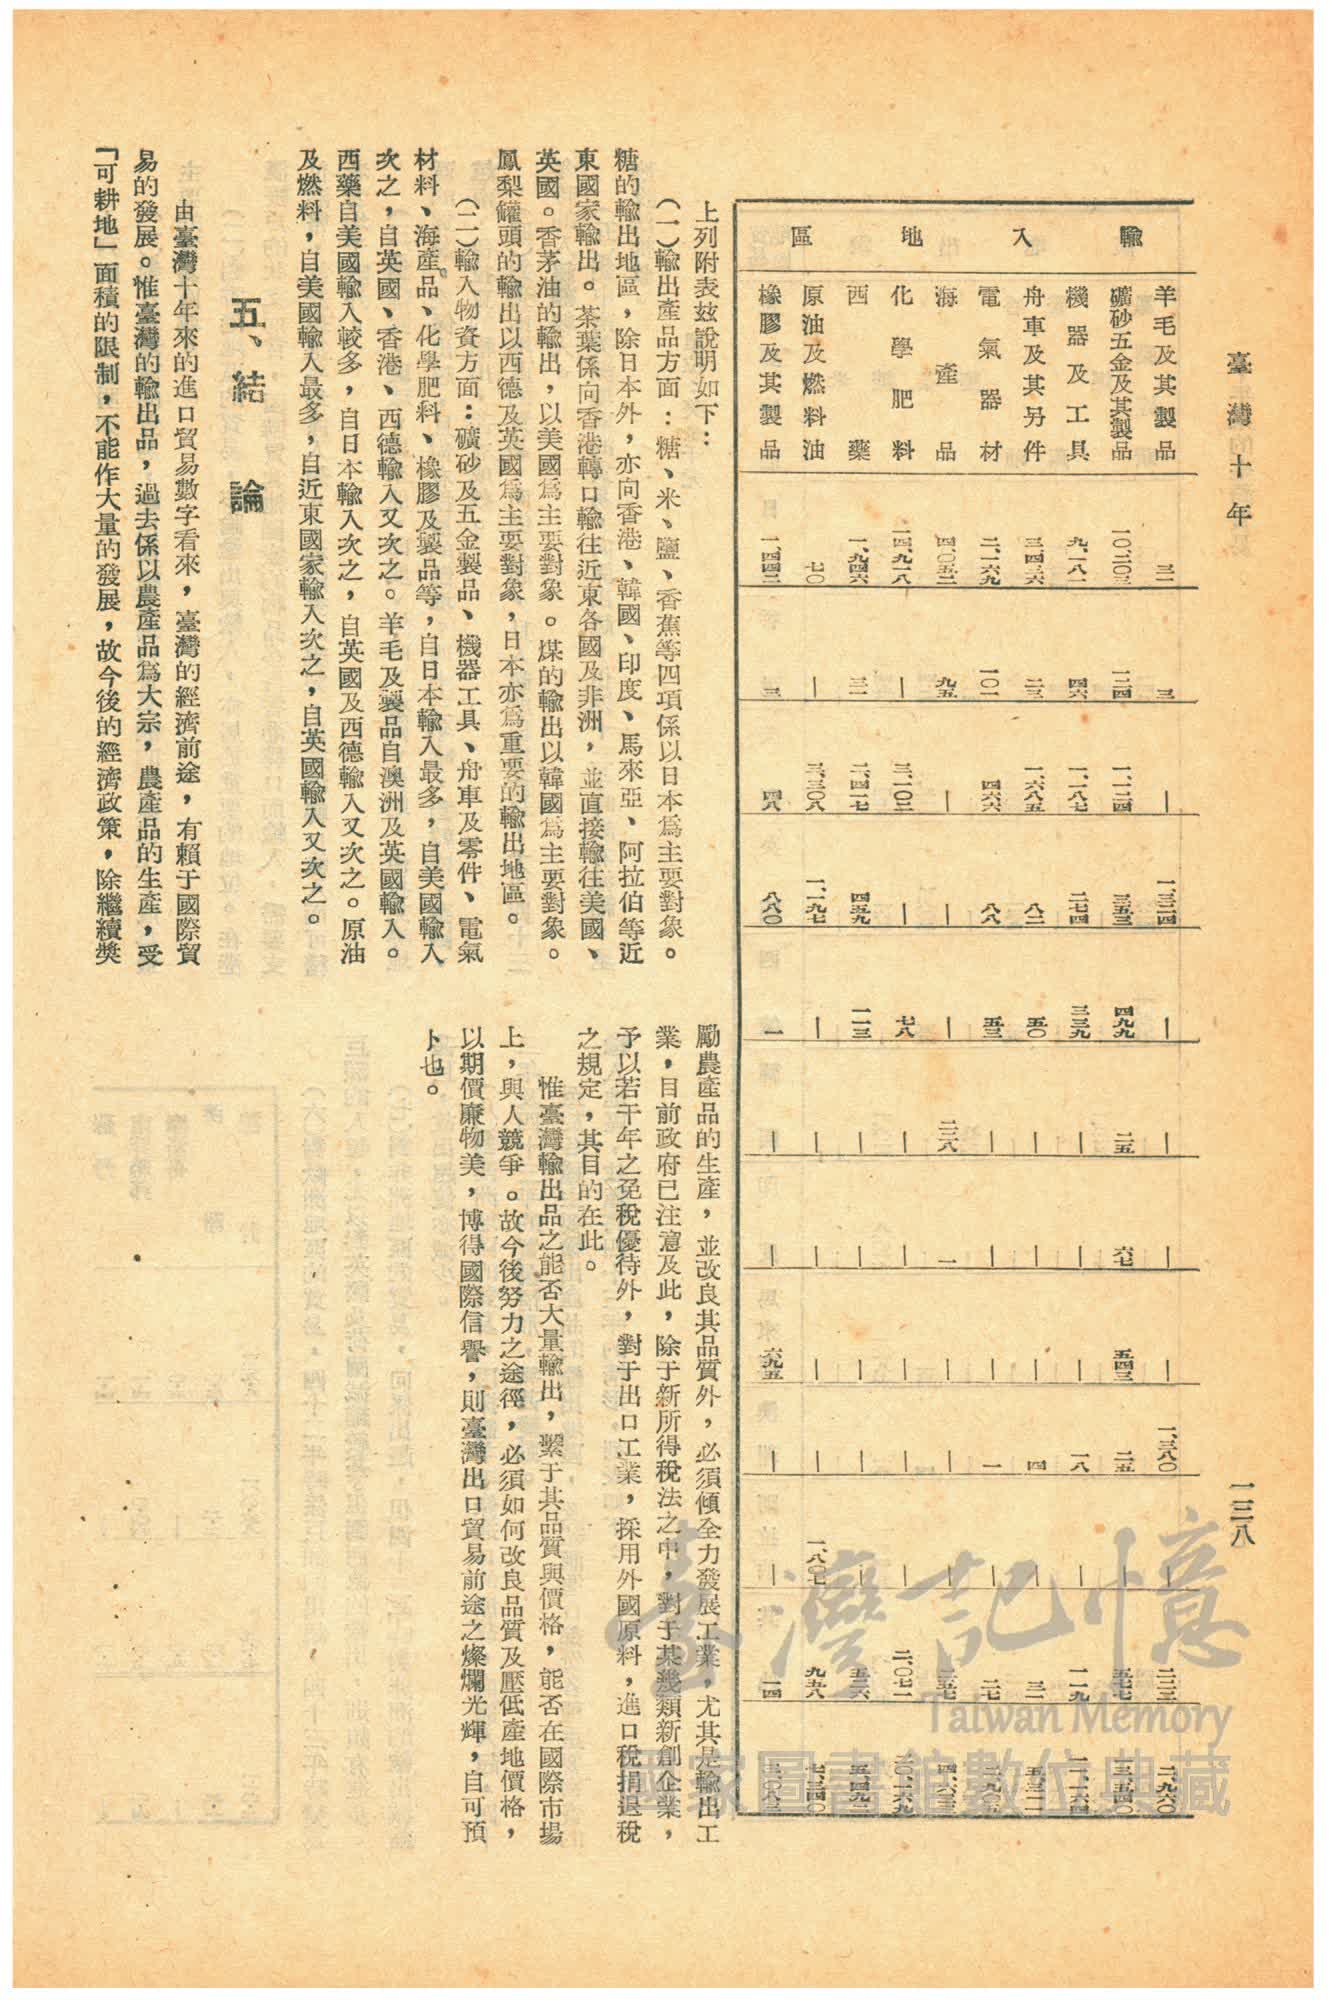 臺灣十年
一三八
輸入地區
羊毛及其製品 三一 三 — 一、三二四 — — — — 一、三八〇 — 二二二 二、九六〇
礦砂五金及其製品 一〇、二〇三 一二四 一、一二四 三五三 四九九 二五 六七 五四三 二五 — 五七七 一三、五四〇
機器及工具 九、一八一 四六 一、一八七 二七四 三三九 — — — 一八 — 一一九 一一、一六四
舟車及其另件 三、四三六 二三 一、六八五 八二 五〇 — — — 四 — 三一 五、三一一
電氣器材 二、一六九 一〇一 四六六 八八 五三 — — — 一 — 二七 二、九〇五
海產品 四、〇五二 九五 — — — 二二八 一 — — — 二五七 四、六三三
化學肥料 一四、九一八 — 三、一〇二 — 七八 — — — — — 二、〇七一 二〇、一六九
西藥 一、九四六 三一 二、四一七 四五九 一一三 — — — — — 五二六 五、四九二
原油及燃料油 七〇 — 三、三〇八 一、一九七 — — — — — 一、八〇七 九五八 七、三四〇
橡膠及其製品 一、四四二 三 四八 八八〇 一 — — 六九五 — — 一四 三、〇八三
上列附表茲說明如下：
（一）輸出產品方面：糖、米、鹽、香蕉等四項係以日本爲主要對象。
糖的輸出地區，除日本外，亦向香港、韓國、印度、馬來亞、阿拉伯等近
東國家輸出。茶葉係向香港轉口輸往近東各國及非洲，並直接輸往美國、
英國。香茅油的輸出，以美國爲主要對象。煤的輸出以韓國爲主要對象。
鳳梨罐頭的輸出以西德及英國爲主要對象，日本亦爲重要的輸出地區。
（二）輸入物資方面：礦砂及五金製品、機器工具、舟車及零件、電氣
材料、海產品、化學肥料、橡膠及製品等，自日本輸入最多，自美國輸入
次之，自英國、香港、西德輸入又次之。羊毛及製品自澳洲及英國輸入。
西藥自美國輸入較多，自日本輸入次之，自英國及西德輸入又次之。原油
及燃料，自美國輸入最多，自近東國家輸入次之，自英國輸入又次之。
五、結論
由臺灣十年來的進口貿易數字看來，臺灣的經濟前途，有賴于國際貿
易的發展。惟臺灣的輸出品，過去係以農產品爲大宗，農產品的生產，受
「可耕地」面積的限制，不能作大量的發展，故今後的經濟政策，除繼續獎
勵農產品的生產，並改良其品質外，必須傾全力發展工業，尤其是輸出工
業，目前政府已注意及此，除于新所得稅法之中，對于某幾類新創企業，
予以若干年之免稅優待外，對于出口工業，採用外國原料，進口稅捐退稅
之規定，其目的在此。
惟臺灣輸出品之能否大量輸出，繫于其品質與價格，能否在國際市場
上，與人競爭。故今後努力之途徑，必須如何改良品質及壓低產地價格，
以期價廉物美，博得國際信譽，則臺灣出口貿易前途之燦爛光輝，自可預
卜也。
臺灣記憶
Taiwan Memory
國家圖書館數位典藏